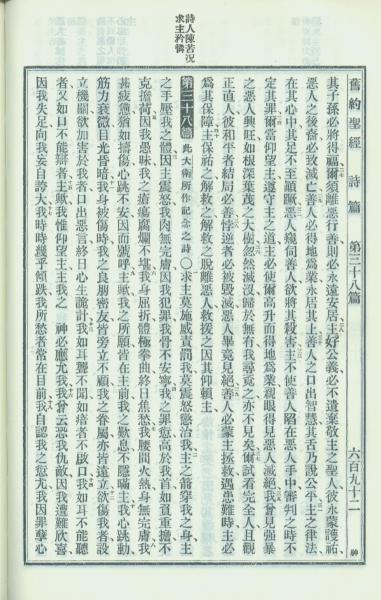 舊約聖經 詩篇 第三十八篇 六百九十二 神
其子孫必將得福爾須離惡行善則必永遠安居主好公義必不遺棄敬主之聖人彼永蒙護祐
惡人之後裔必致滅亡善人必得地為業永居其上善人之口出智慧其舌乃說公平主之律法
在其心中其足不至顚蹶惡人窺伺善人欲將其殺害主不使善人陷在惡人手中審判之時不
定其罪爾當仰望主遵守主之道主必使爾高升而得地為業親眼得見惡人滅絕我曾見强暴
之惡人興旺如根深葉茂之大樹忽然滅沒歸於無有我尋覓之亦不見爾試看完全人且觀
正直人彼和平者結局必善悖逆者必被毀滅惡人畢竟見絕善人必蒙主拯救遇患難時主必
為其保障主保祐之解救之解救之脫離惡人救援之因其仰賴主
詩人陳苦況
求主矜憐
第三十八篇 此大衛所作記念之詩 ○求主莫施威責罰我莫震怒懲治我主之箭穿我之身主
之手壓我之體因主震怒我肉無完膚因我犯罪我骨不安寧我之罪愆高於我首如負重擔不
克擔荷因我愚昧我之瘡瘍腐爛不堪我身屈折體極拳曲終日危愁我腰間火熱身無完膚我
甚疲憊猶如擣傷心跳不安因而號呼主歟我之所願皆在主前我之歎息不隱瞞主我心跳動
筋力衰微目光昏暗我身被傷時我之良朋密友皆旁立不顧我之眷屬亦皆遠立欲傷我者設
立機關欲加害於我者口出惡言終日心生詭計我如耳聾不聞如瘖者不啟口我如耳不能聽
者又如口不能辯者主歟我惟仰望主主我之 神必應允我我曾云恐我仇敵因我遭難欣喜
因我失足向我妄自誇大我時時幾乎傾跌我所愁者常在目前我自認我之愆尤我因罪孽心